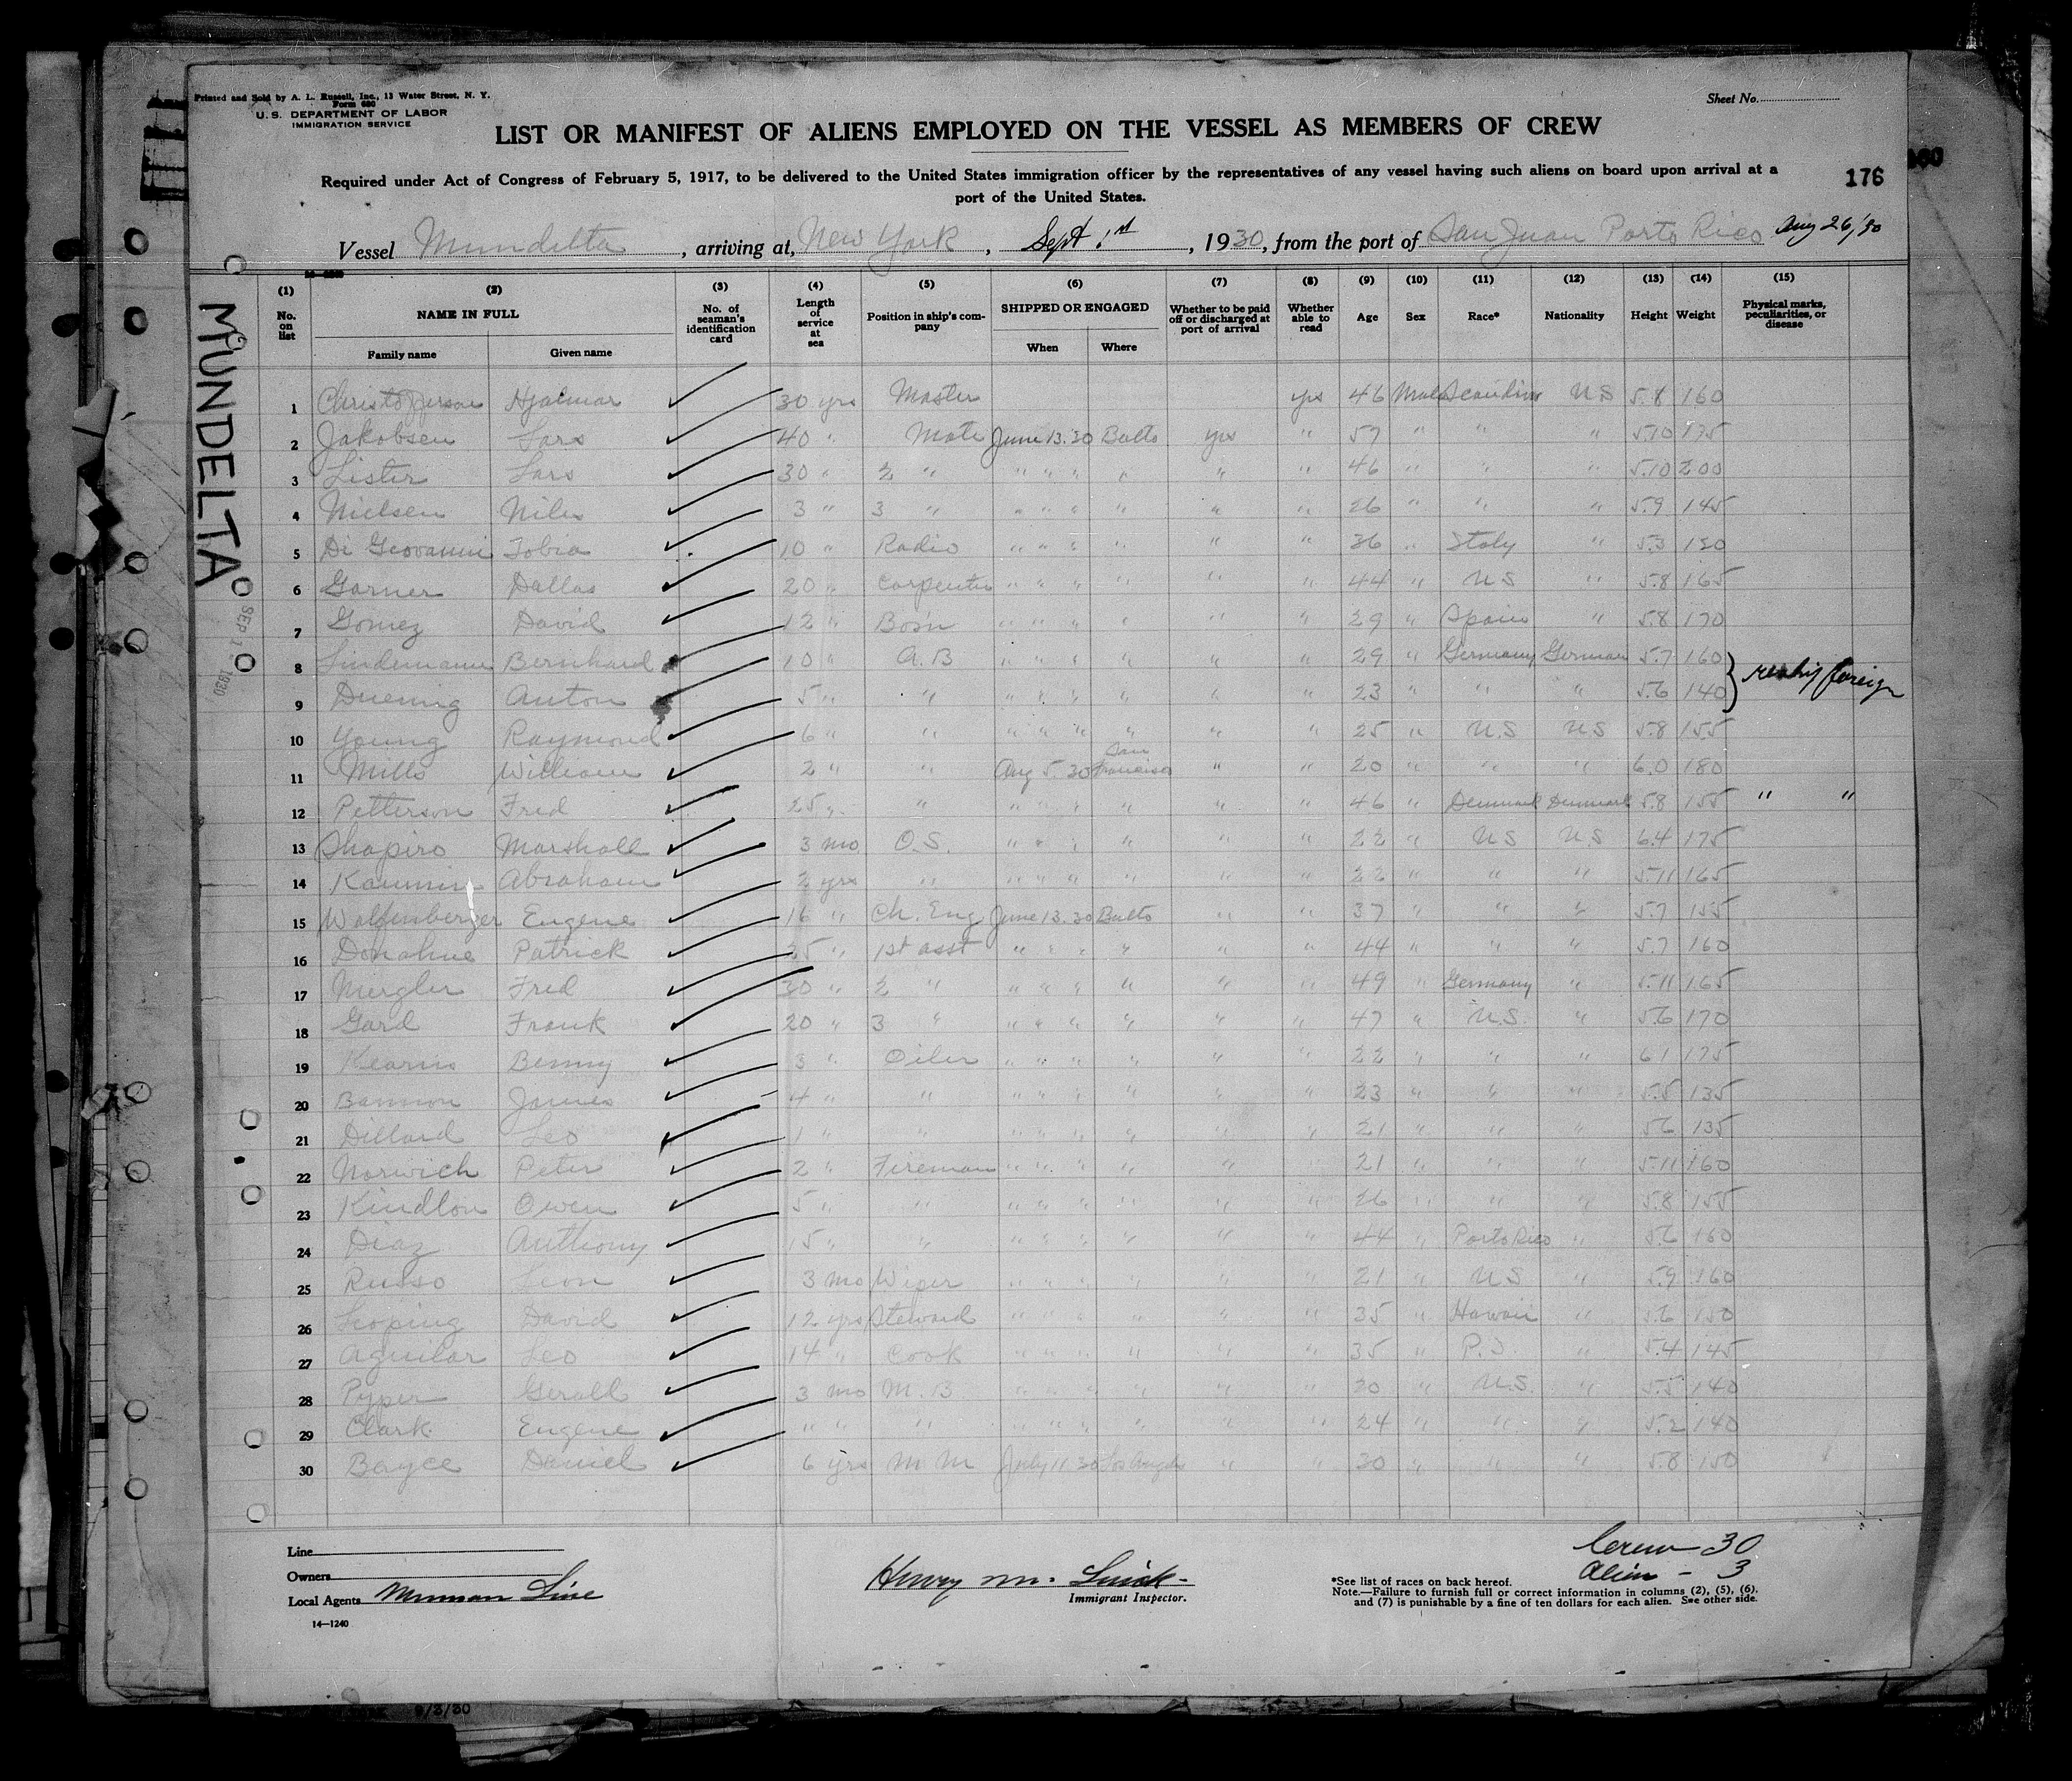 Printed and Sold by A. L. Russell, Inc., 13 Water Street, N. Y.
Form 680
U. S. DEPARTMENT OF LABOR
IMMIGRATION SERVICE
Sheet No.
LIST OR MANIFEST OF ALIENS EMPLOYED ON THE VESSEL AS MEMBERS OF CREW
Required under Act of Congress of February 5, 1917, to be delivered to the United States immigration officer by the representatives of any vessel having such aliens on board upon arrival at a
port of the United States.
176
Vessel Mundelta, arriving at, New York, Sept 1st, 1930, from the port of San Juan Porto Rico Aug 26/30
MUNDELTA
SEP 1 1930
(1) (2) (3) (4) (5) (6) (7) (8) (9) (10) (11) (12) (13) (14) (15)
No. on list NAME IN FULL Family name Given name No. of seaman's identification card Length of service at sea Position in ship's company SHIPPED OR ENGAGED When Where Whether to be paid off or discharged at port of arrival Whether able to read Age Sex Race* Nationality Height Weight Physical marks, peculiarities, or disease
1 Christofferson Hjalmar 30 yrs Master yrs 46 Male Scandinav US 5.8 160
2 Jakobsen Lars 40 " Mate June 13.30 Balto yes " 57 " " " 5.10 175
3 Lister Lars 30 " 2 " " " " " " " 46 " " " 5.10 200
4 Nielsen Niles 3 " 3 " " " " " " " 26 " " " 5.9 145
5 Di Geovanni Tobia 10 " Radio " " " " " " 36 " Italy " 5.3 150
6 Garner Dallas 20 " Carpenter " " " " " " 44 " US " 5.8 165
7 Gomez David 12 " Bosn " " " " " " 29 " Spain " 5.8 170
8 Lindemann Bernhard 10 " A.B " " " " " " 29 " Germany German 5.7 160
9 Duening Anton 5 " " " " " " " " 23 " " " 5.6 140 } foreign
10 Young Raymond 6 " " " " " " " " 25 " U.S US 5.8 155
11 Mills William 2 " " Aug 5.30 San Francisco " " 20 " " " 6.0 180
12 Petterson Fred 25 " " " " " " " " 46 " Denmark Denmark 5.8 155 " "
13 Shapiro Marshall 3 mo O.S. " " " " " " 22 " US US 6.4 175
14 Abraham 2 yrs " " " " " " " 22 " " " 5.11 165
15 Wolfensberger Eugene 16 " Ch. Eng June 13.30 Balto " " 37 " " " 5.7 155
16 Donahue Patrick 25 " 1st asst " " " " " " 44 " " " 5.7 160
17 Mergler Fred 30 " 2 " " " " " " " 49 " Germany " 5.11 165
18 Gard Frank 20 " 3 " " " " " " " 47 " U.S. " 5.6 170
19 Kearns Benny 3 " Oiler " " " " " " 22 " " " 6 1 175
20 Bannon James 4 " " " " " " " " 23 " " " 5.5 135
21 Dillard Leo 1 " " " " " " " " 21 " " " 5 6 135
22 Norwich Peter 2 " Fireman " " " " " " 21 " " " 5.11 160
23 Kindlon Owen 5 " " " " " " " " 26 " " " 5.8 155
24 Diaz Anthony 15 " " " " " " " " 44 " Porto Rico " 5.6 160
25 Russo Leon 3 mo Wiper " " " " " " 21 " US " 5.9 160
26 David 12 yrs Steward " " " " " " 35 " Hawaii " 5.6 150
27 Aguilar Leo 14 " Cook " " " " " " 35 " P.I. " 5.4 145
28 Pyper Gerald 3 mo M.B " " " " " " 20 " U.S. " 5.5 140
29 Clark Eugene " " " " " " " " " 24 " " " 5.2 140
30 Boyce Daniel 6 yrs M M July 11 30 Los Angeles " " 30 " " " 5.8 150
Crew - 30
Alien - 3
Line
Owners
Local Agents Munson Line
Henry M.
Immigrant Inspector.
*See list of races on back hereof.
Note.—Failure to furnish full or correct information in columns (2), (5), (6),
and (7) is punishable by a fine of ten dollars for each alien. See other side.
14—1240
9/3/30